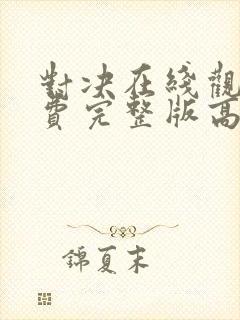 對决在綫觀
費完整版高
錦夏末